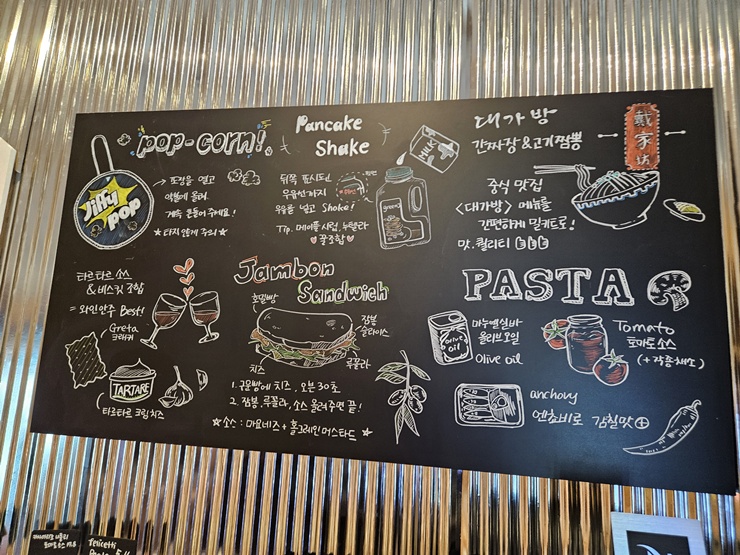 pop-corn!
Jiffy
pop
포장을 열고
약불에 올려
계속 흔들어 주세요!
★타지않게 주의★
Pancake
Shake
뒤쪽 표시된
우유선까지
우유를 넣고 Shake!
Tip. 메이플 시럽, 누텔라
♥꿀조합♥
MILK
대가방
간짜장 & 고기짬뽕
戴家坊
중식 맛집
<대가방> 메뉴를
간편하게 밀키트로!
맛, 퀄리티
타르타르 소스
& 비스킷 조합
= 와인안주 Best!
Greta
크래커
TARTARE
타르타르 크림치즈
Jambon
Sandwich
호밀빵
잠봉
슬라이스
치즈
루꼴라
1. 구운빵에 치즈, 오븐 30초
2. 잠봉, 루꼴라, 소스 올려주면 끝!
★소스 : 마요네즈 + 홀그레인 머스타드★
PASTA
olive
oil
마누엘실바
올리브오일
Olive oil
Tomato
토마토 소스
(+각종채소)
anchovy
엔초비로 감칠맛+
Felicetti